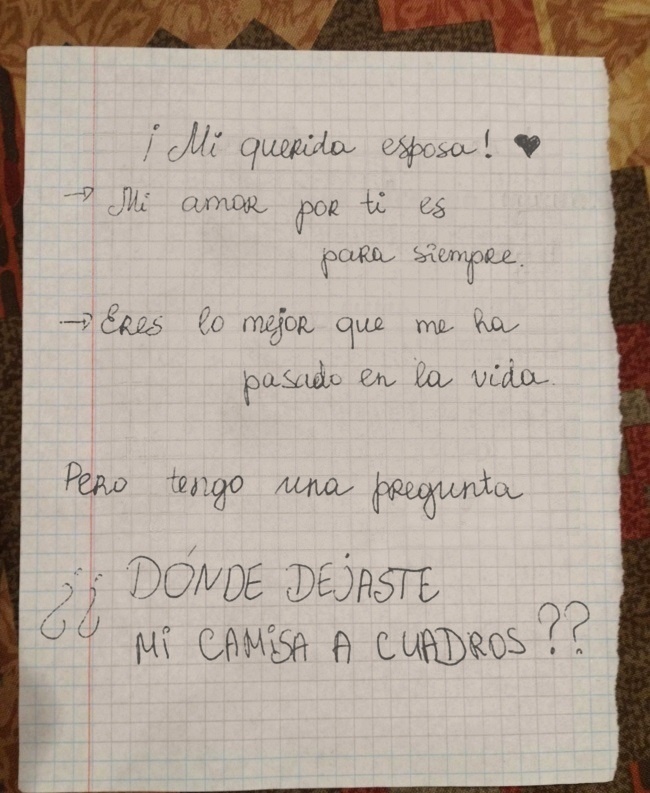 ¡Mi querida esposa! ♥
→ Mi amor por ti es
para siempre.
→ Eres lo mejor que me ha
pasado en la vida.
Pero tengo una pregunta
¿¿ DÓNDE DEJASTE
MI CAMISA A CUADROS ??